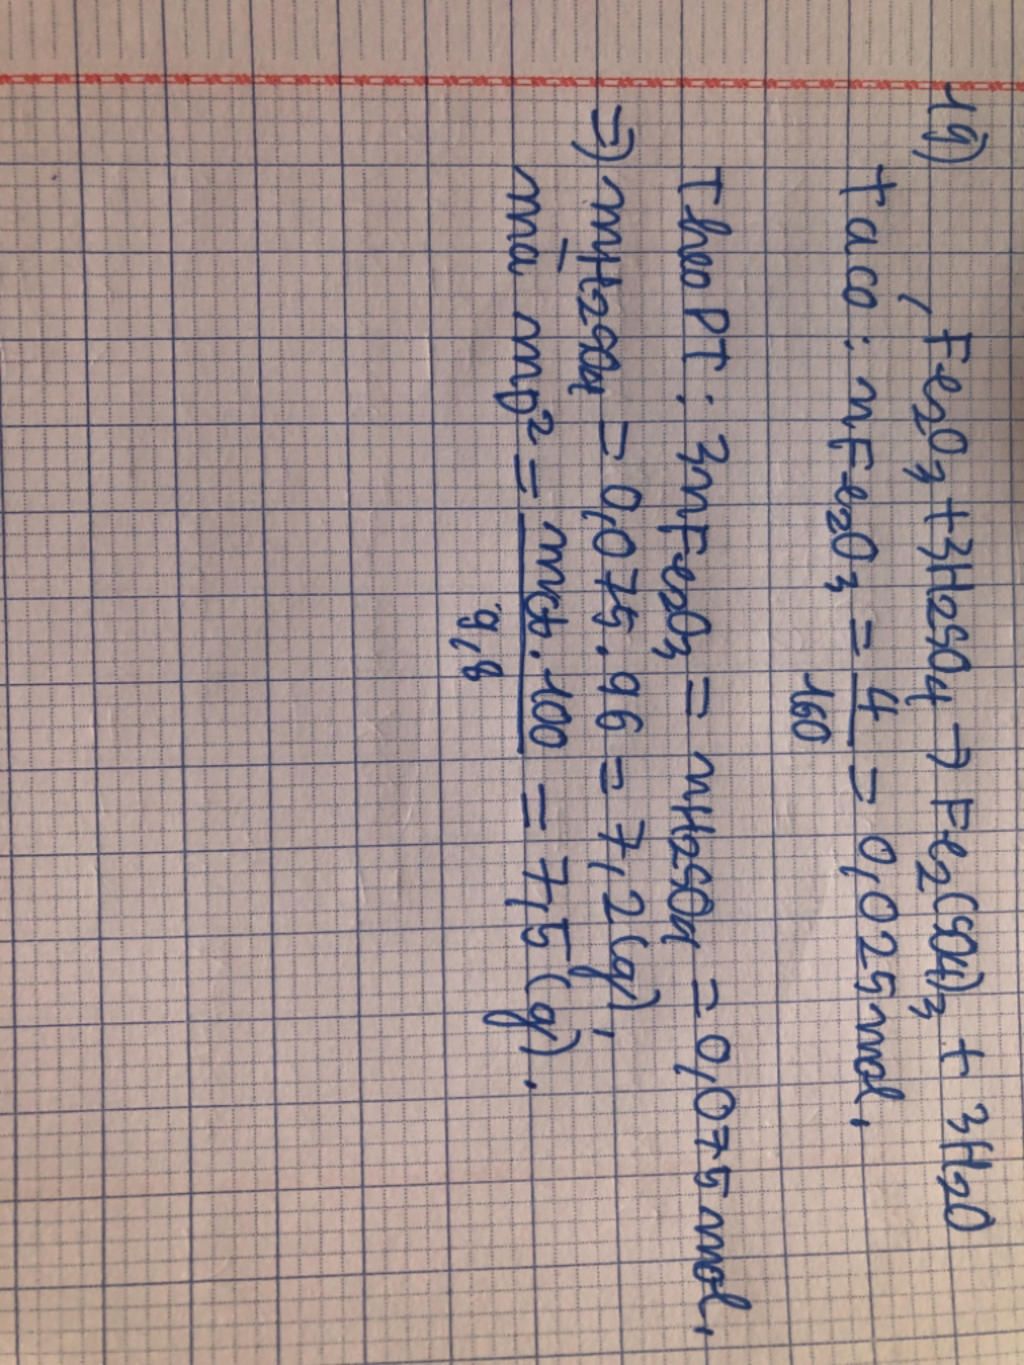 19)
Fe2O3 + 3H2SO4 → Fe2(SO4)3 + 3H2O
Ta có: nFe2O3 = 4/160 = 0,025 mol,
Theo PT: 3nFe2O3 = nH2SO4 = 0,075 mol,
=) mH2SO4 = 0,075.96 = 7,2(g),
mà mD2 = mct.100/9,8 = 7,5(g).